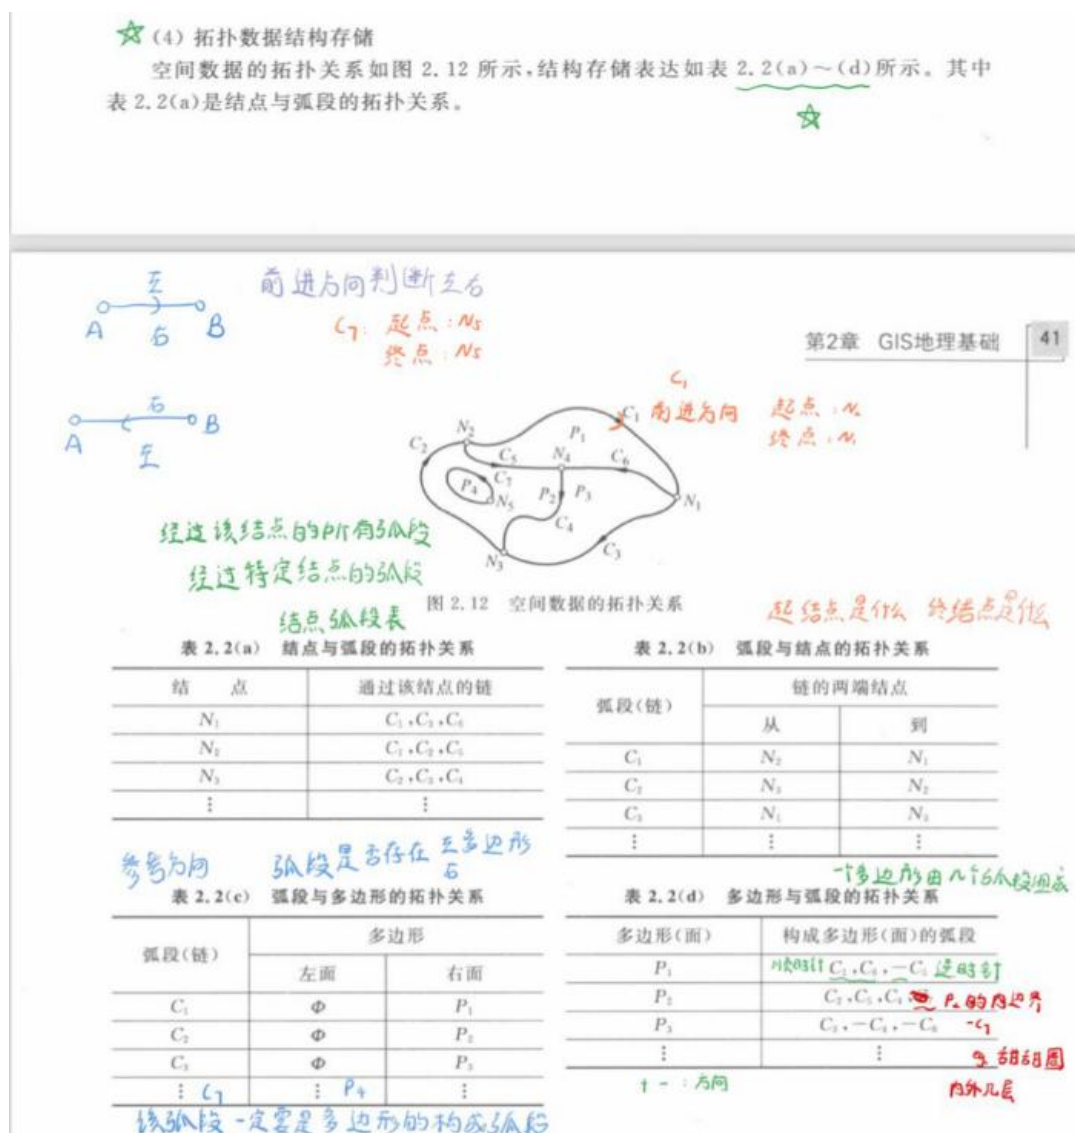 ☆(4) 拓扑数据结构存储
空间数据的拓扑关系如图 2.12 所示,结构存储表达如表 2.2(a)~(d)所示。其中
表 2.2(a)是结点与弧段的拓扑关系。
☆
左
A 右 B
前进方向判断左右
C₇: 起点:N₅
终点:N₅
第2章 GIS地理基础 41
右
A B
左
C₁
前进方向 起点:N₂
终点:N₁
C₁
N₂ P₁
C₂ C₅ N₄ C₆
P₄ C₇ P₂ P₃ N₁
N₅
C₄
N₃ C₃
经过该结点的所有弧段
经过特定结点的弧段
图 2.12 空间数据的拓扑关系
结点弧段表
起结点是什么 终结点是什么
表 2.2(a) 结点与弧段的拓扑关系
结 点 通过该结点的链
N₁ C₁,C₃,C₆
N₂ C₁,C₂,C₅
N₃ C₂,C₃,C₄
⋮ ⋮
表 2.2(b) 弧段与结点的拓扑关系
弧段(链) 链的两端结点
从 到
C₁ N₂ N₁
C₂ N₃ N₂
C₃ N₁ N₃
⋮ ⋮ ⋮
参考方向 弧段是否存在 左多边形
右
表 2.2(c) 弧段与多边形的拓扑关系
弧段(链) 多边形
左面 右面
C₁ Φ P₁
C₂ Φ P₂
C₃ Φ P₃
⋮ C₇ ⋮ P₄ ⋮
该弧段一定要是多边形的构成弧段
一个多边形由几个弧段组成
表 2.2(d) 多边形与弧段的拓扑关系
多边形(面) 构成多边形(面)的弧段
P₁ 顺时针 C₁,C₆,-C₅ 逆时针
P₂ C₂,C₅,C₄ P₂的内边界
P₃ C₃,-C₄,-C₆ -C₇
⋮ ⋮ 甜甜圈
+ - :方向 内外几层